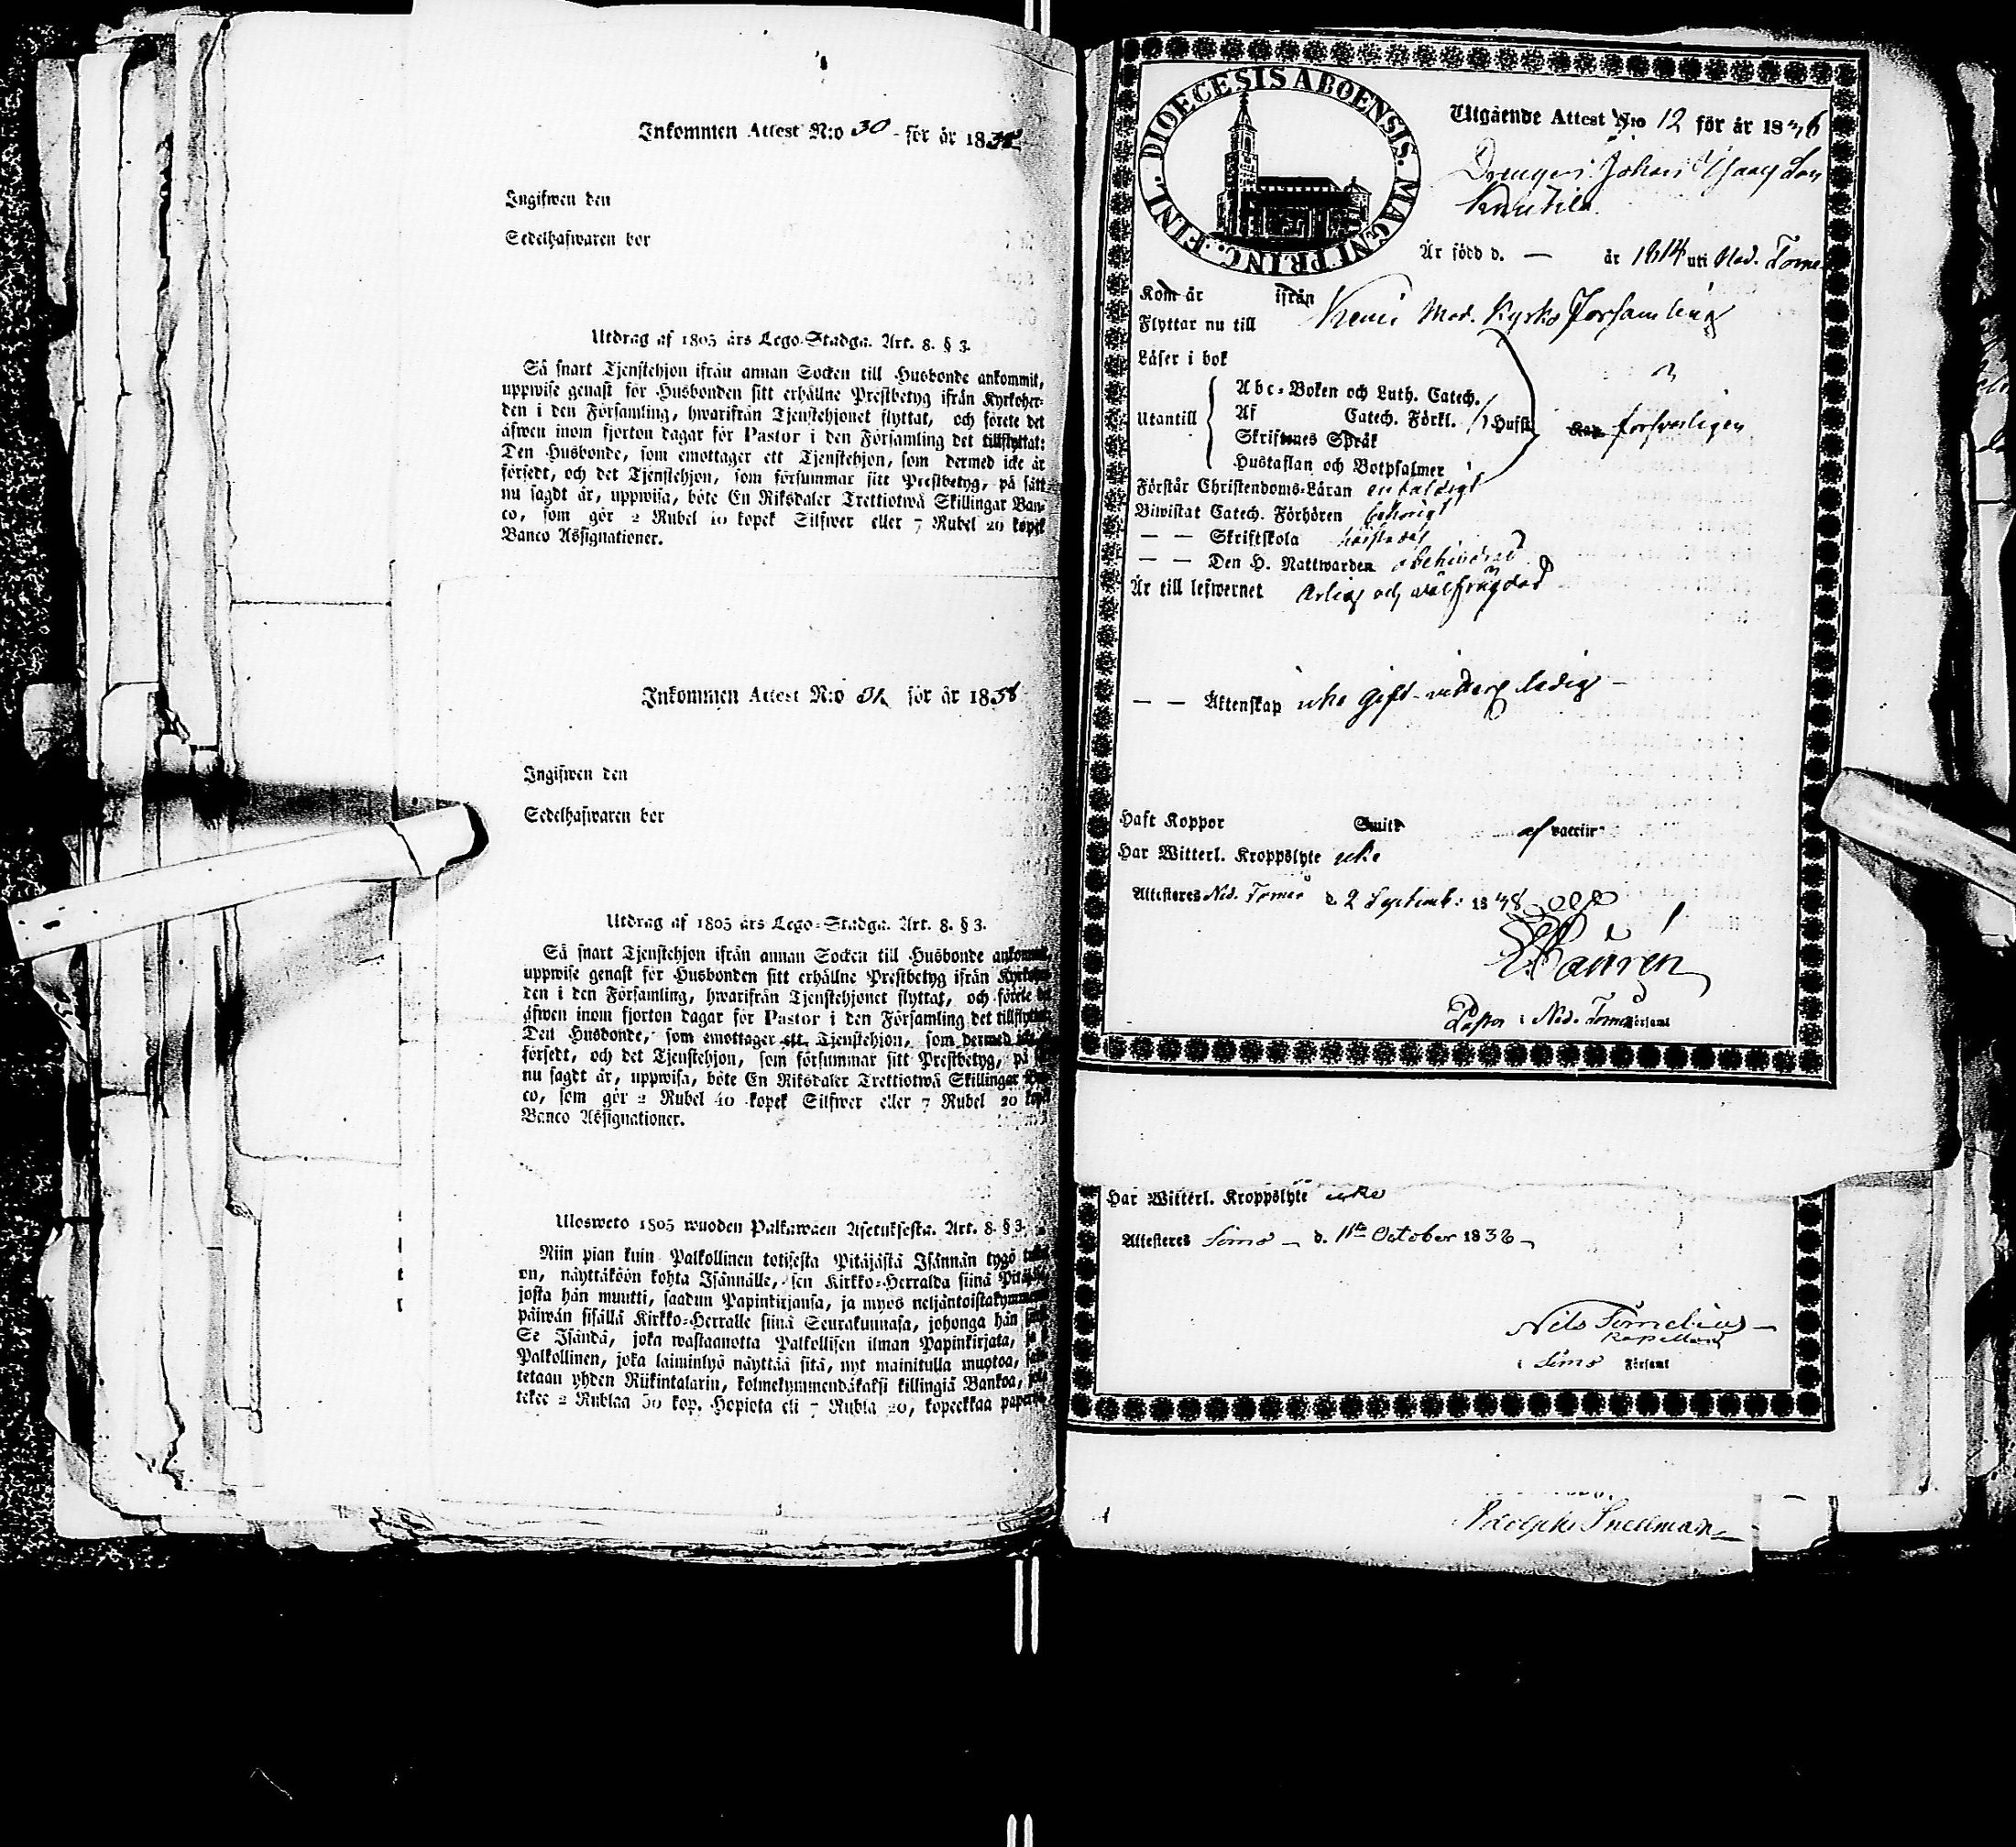 Inkommen Attest N:o 30 - för år 1838
Ingifwen den
Sedelhafwaren bor
Utdrag af 1805 års Lego-Stadga. Art. 8. § 3.
Så snart Tjenstehjon ifrån annan Socken till Husbonde ankommit,
uppwise genast för Husbonden sitt erhållne Prestbetyg ifrån Kyrkoher-
den i den Församling, hwarifrån Tjenstehjonet flyttat, och förete det
äfwen inom fjorton dagar för Pastor i den Församling det tillflyttat:
Den Husbonde, som emottager ett Tjenstehjon, som dermed icke är
försedt, och det Tjenstehjon, som försummar sitt Prestbetyg, på sätt
nu sagdt är, uppwisa, böte En Riksdaler Trettiotwå Skillingar Ban-
co, som gör 2 Rubel 40 kopek Silfwer eller 7 Rubel 20 kopek
Banco Assignationer.
Inkommen Attest N:o 31 för år 1838
Ingifwen den
Sedelhafwaren bor
Utdrag af 1805 års Lego-Stadga. Art. 8. § 3.
Så snart Tjenstehjon ifrån annan Socken till Husbonde ankommit,
uppwise genast för Husbonden sitt erhållne Prestbetyg ifrån
den i den Församling, hwarifrån Tjenstehjonet flyttat, och förete
äfwen inom fjorton dagar för Pastor i den Församling det
Den Husbonde, som emottager ett Tjenstehjon, som dermed
försedt, och det Tjenstehjon, som försummar sitt Prestbetyg, på
nu sagdt är, uppwisa, böte En Riksdaler Trettiotwå Skillingar
co, som gör 2 Rubel 40 kopek Silfwer eller 7 Rubel 20 kopek
Banco Assignationer.
Ulosweto 1805 wuoden Palkawäen Asetuksesta. Art. 8. § 3.
Niin pian kuin Palkollinen totisesta Pitäjästä Isännän tygö
on, näyttäköön kohta Isännälle, sen Kirkko-Herralda siinä
josta hän muutti, saadun Papinkirjansa, ja myös neljäntoistakymmenen
päiwän sisällä Kirkko-Herralle siinä Seurakunnasa, johonga hän
Se Isändä, joka wastaanotta Palkollisen ilman Papinkirjata,
Palkollinen, joka laiminlyö näyttää sitä, nyt mainitulla muotoa,
tetaan yhden Riikintalarin, kolmekymmendäkaksi killingiä Bankoa,
tekee 2 Rublaa 50 kop. Hopiota eli 7 Rubla 20, kopeekkaa
DIOECESIS ABOENSIS. MAGNI PRINC. FINL.
Utgående Attest N:o 12 för år 1838
Drengen Johan Isaacs Son
Knutila
Är född d. — år 1814 uti Ned. Torneå
Kom år ifrån
Flyttar nu till Kemi Mod. Kyrko Församling
Läser i bok
Abc-Boken och Luth. Catech.
Utantill Af Catech. Förkl. Hust. försvarligen
Skriftenes Språk
Hustaflan och Botpsalmer
Förstår Christendoms-Läran enfaldigt
Biwistat Catech. Förhören behörigt
— — Skriftskola
— — Den H. Nattwarden obehindrad
Är till lefwernet ärlig och wälfrägdad
— — Äktenskap icke gift - ledig -
Haft Koppor Smitt af vaccin
Har Witterl. Kroppslyte icke
Attesteres Ned. Torneå d. 2 Septemb: 1838
Pastor i Ned. Torneå Församl
Har Witterl. Kroppslyte icke
Attesteres Simo — d. 11te October 1838 -
Nils Tornelius —
Kapellan
i Simo Församl
Adolph Snellman